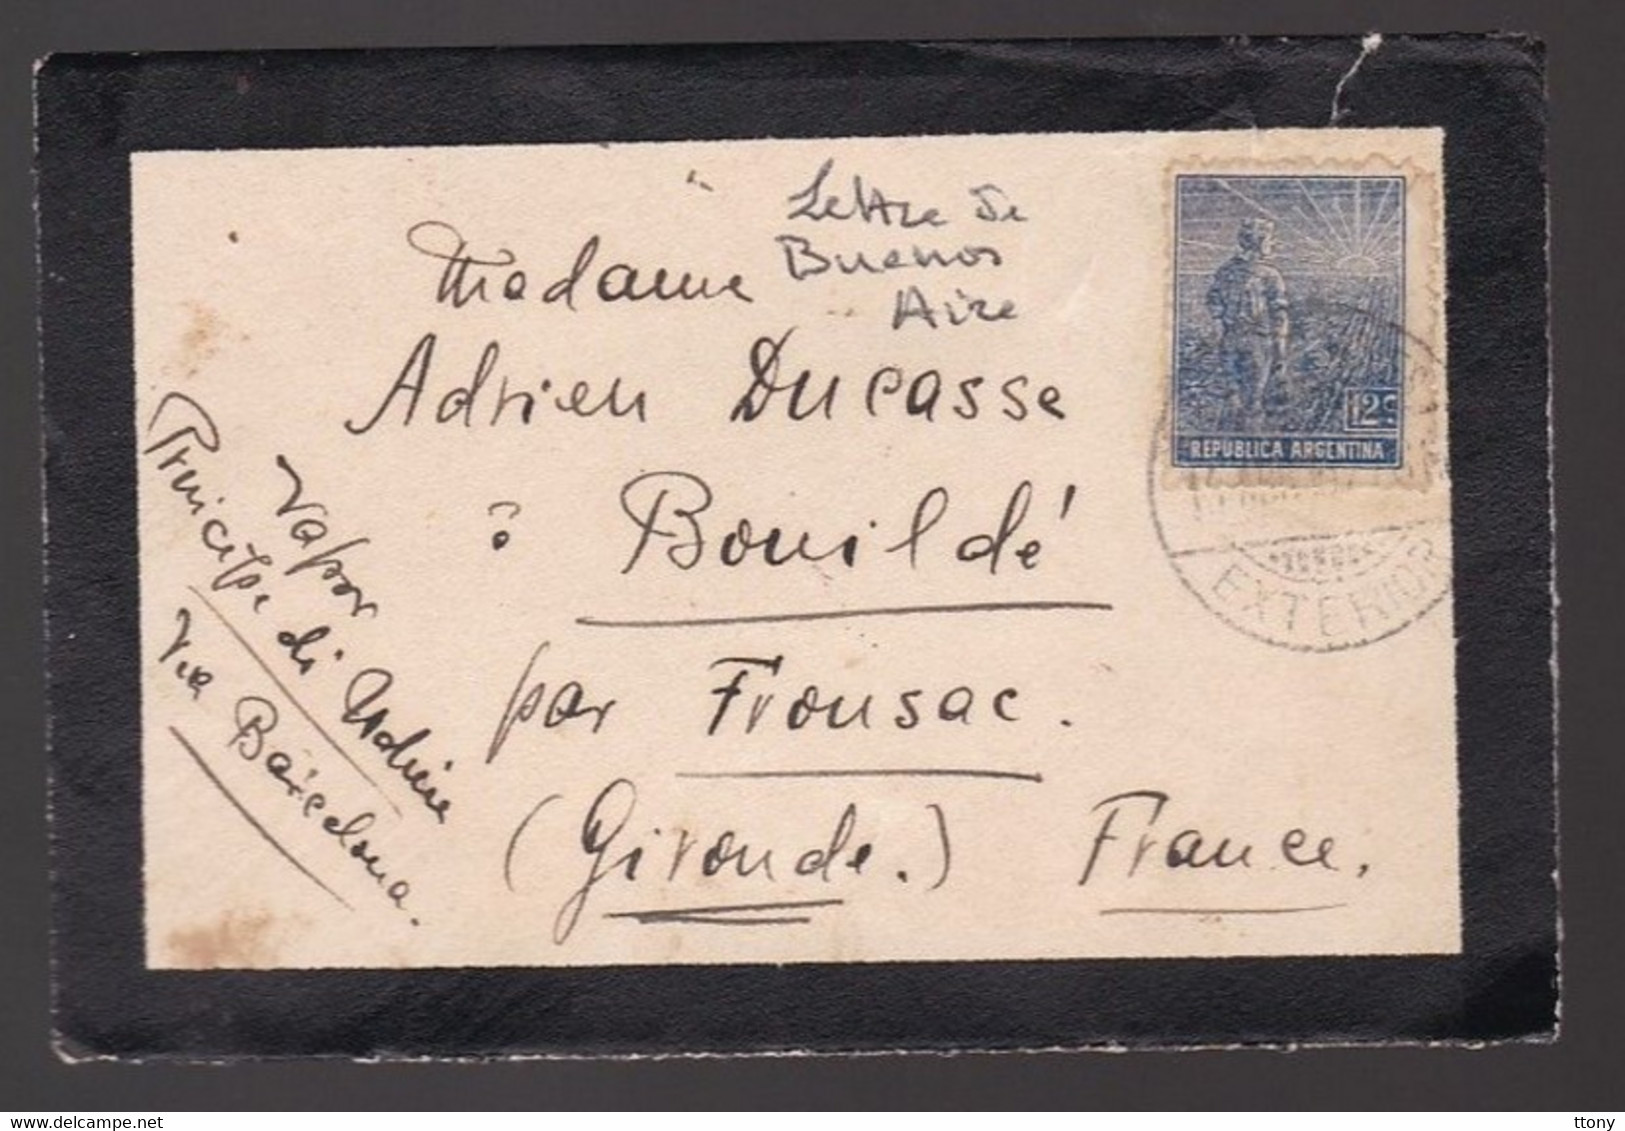 Lettre de
Buenos
Aire
Madame
Adrien Ducasse
à Bouildé
par Fronsac.
(Gironde.) France.
Vapor
Principe di Udine
Via Barcelona.
12c
REPUBLICA ARGENTINA
EXTERIOR
ttony